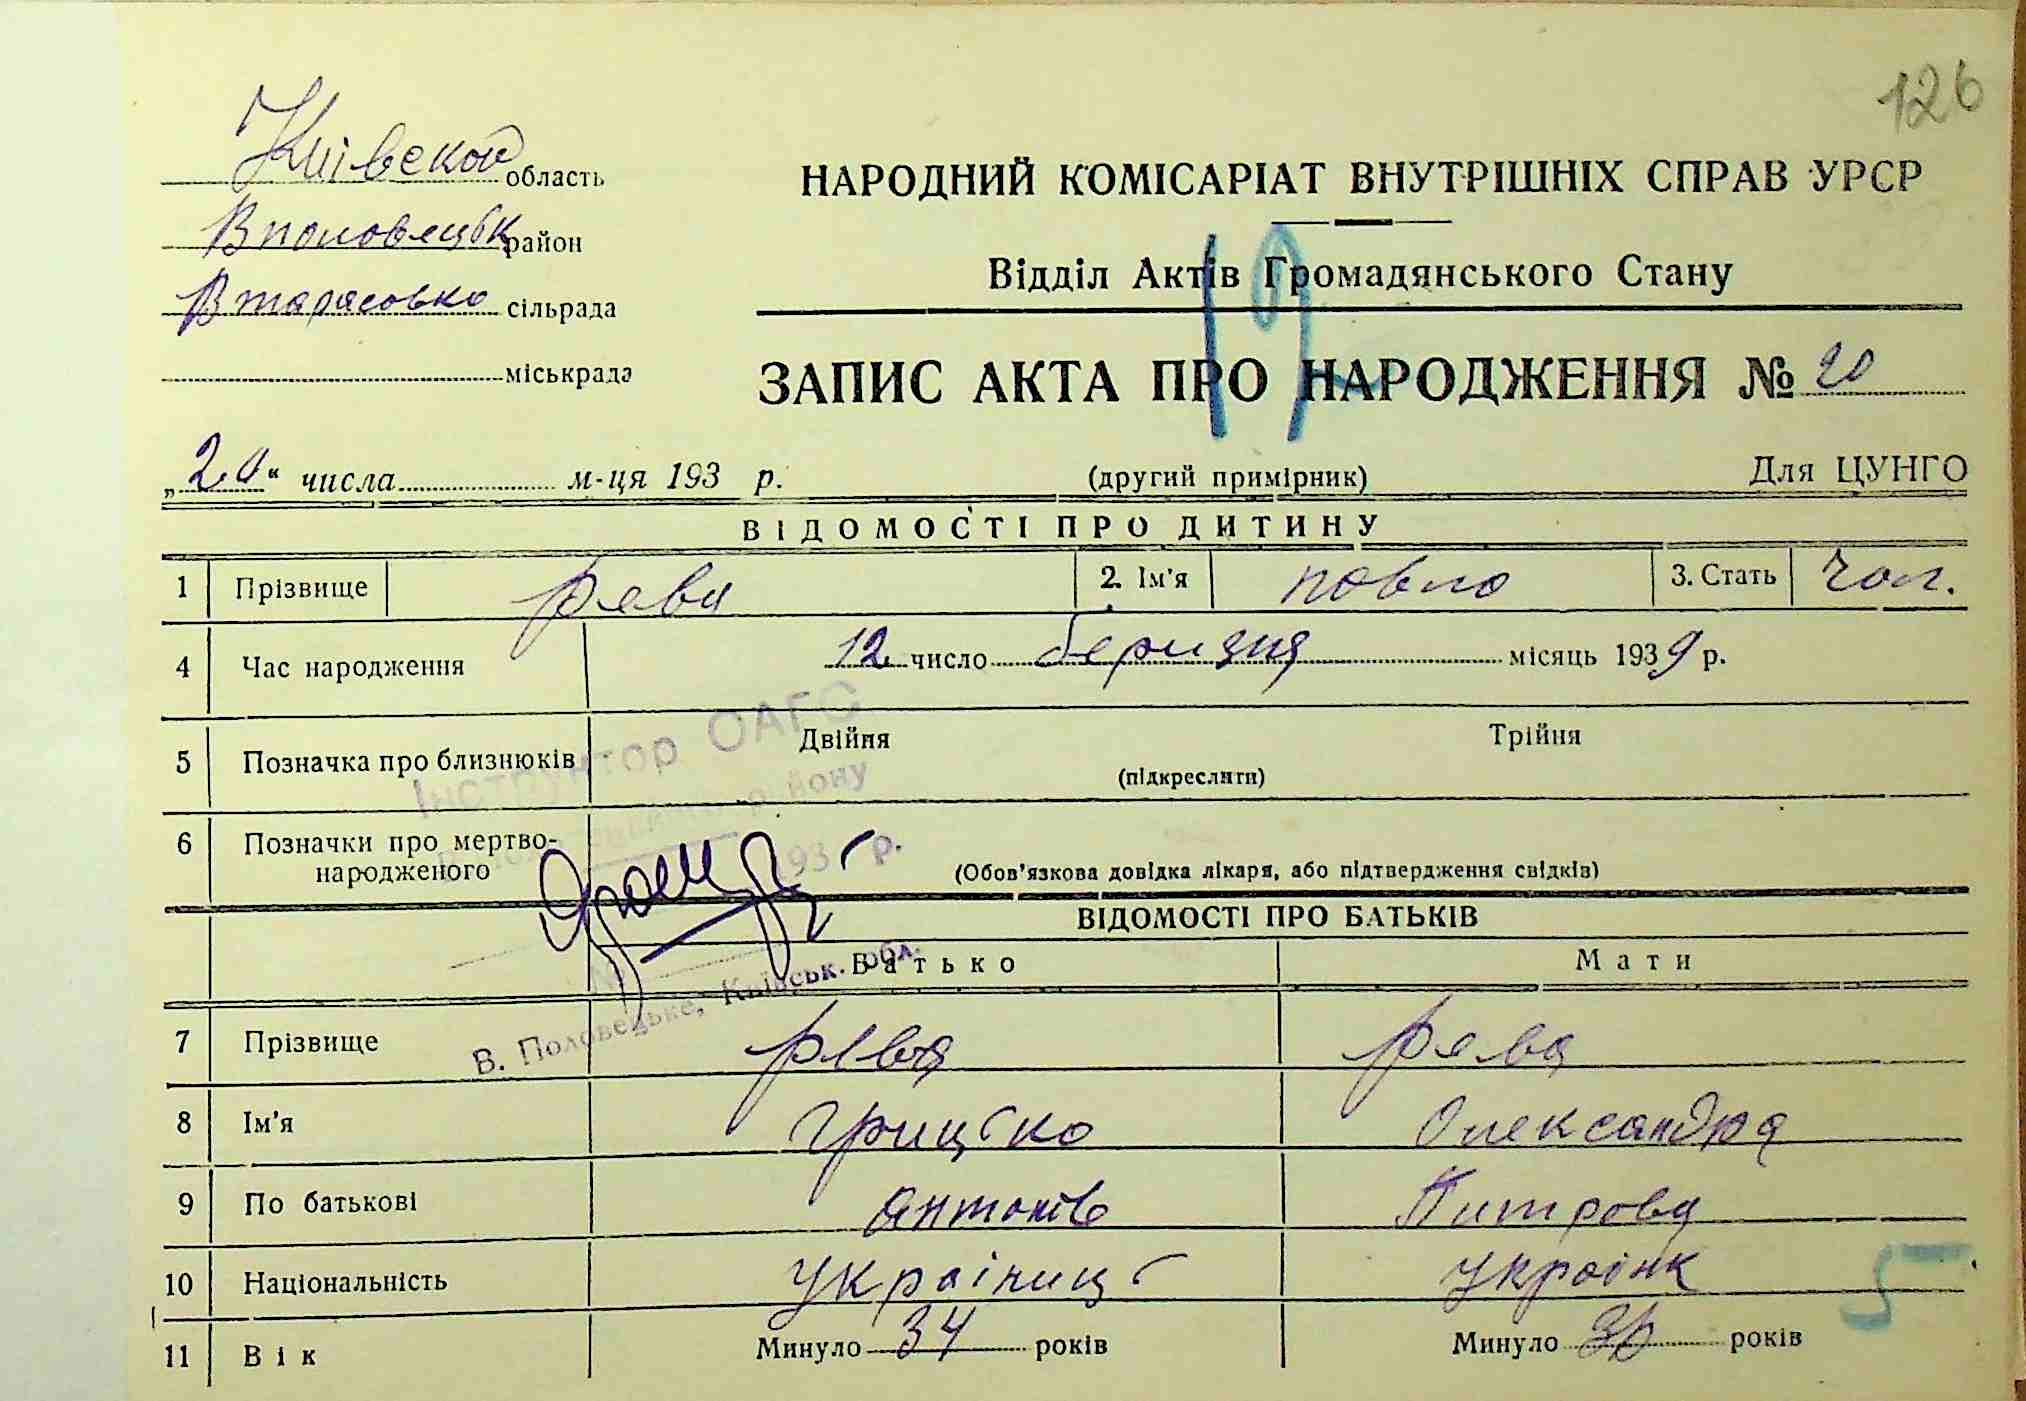 126
Київской область
В половецьк район
В тарасовко сільрада
міськрада
НАРОДНИЙ КОМІСАРІАТ ВНУТРІШНІХ СПРАВ УРСР
Відділ Актів Громадянського Стану
ЗАПИС АКТА ПРО НАРОДЖЕННЯ № 20
„20“ числа м-ця 193 р. (другий примірник) Для ЦУНГО
ВІДОМОСТІ ПРО ДИТИНУ
1 Прізвище Рева 2. Ім'я Повло 3. Стать Чол.
4 Час народження 12 число березня місяць 1939 р.
5 Позначка про близнюків Двійня Трійня
(підкреслити)
6 Позначки про мертво-
народженого (Обов'язкова довідка лікаря, або підтвердження свідків)
Інструктор ОАГС
району
193 р.
В. Половецьке, Київськ. обл.
ВІДОМОСТІ ПРО БАТЬКІВ
Батько Мати
7 Прізвище Рева Рева
8 Ім'я Грицько Олександра
9 По батькові Антонів Питрова
10 Національність Україниць Украінк
11 Вік Минуло 34 років Минуло років